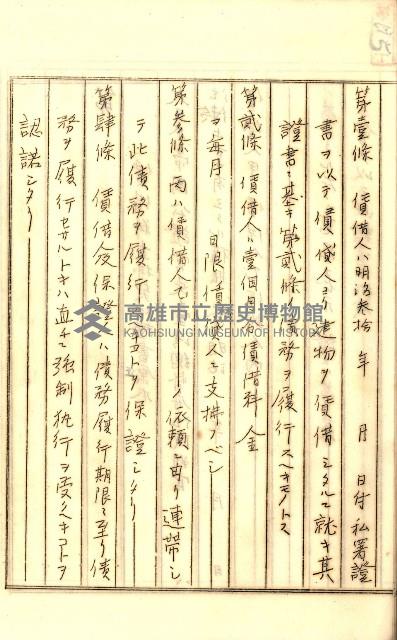 第壹條 賃借人ハ明治参拾 年 月 日付私署證
書ヲ以テ賃貸人ヨリ建物ヲ賃借シタルニ就キ其
證書ニ基キ第貳條ノ債務ヲ履行スヘキモノトス
第貳條 賃借人ハ壹個月 賃借料金
ヲ毎月 日限賃貸人ニ支拂フベシ
第参條 丙ハ賃借人乙 ノ依頼ニ由リ連帯シ
テ此債務ヲ履行 コトヲ保證シタリ
第肆條 賃借人及保證 ハ債務履行期限ニ至リ債
務ヲ履行セザルトキハ直チニ強制執行ヲ受クヘキコトヲ
認諾シタリ
高雄市立歷史博物館
KAOHSIUNG MUSEUM OF HISTORY